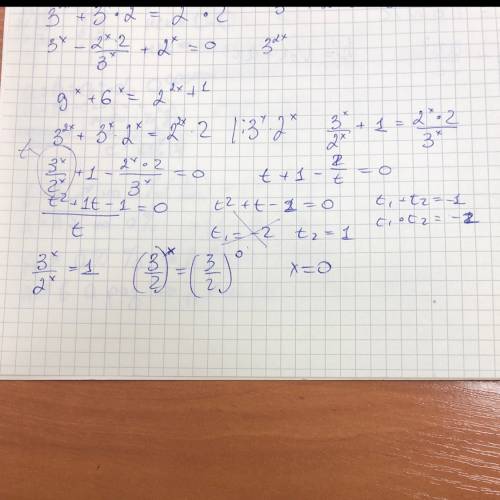 3^x + 3 · 2 = 2 · 2
3^x - (2^x · 2)/3^x + 2^x = 0    3^{2x}
9^x + 6^x = 2^{2x+1}
3^{2x} + 3^x · 2^x = 2^{2x} · 2 | : 3^x · 2^x    3^x/2^x + 1 = (2^x · 2)/3^x
t
3^x/2^x + 1 - (2^x · 2)/3^x = 0    t + 1 - 2/t = 0
(t² + 1t - 1)/t = 0    t² + t - 2 = 0    t₁ + t₂ = -1
t₁ · t₂ = -2
t₁ = -2    t₂ = 1
3^x/2^x = 1    (3/2)^x = (3/2)^0    x = 0